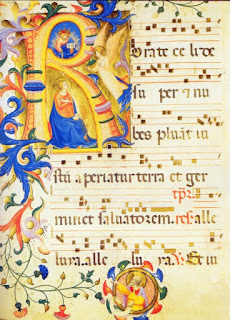 Rorate celi de
su per et nu
bes pluāt iu
stū aperiatur terra et ger
tp̄r.
minet salvatorem. res alle
luya. alle lu ya. Et iu